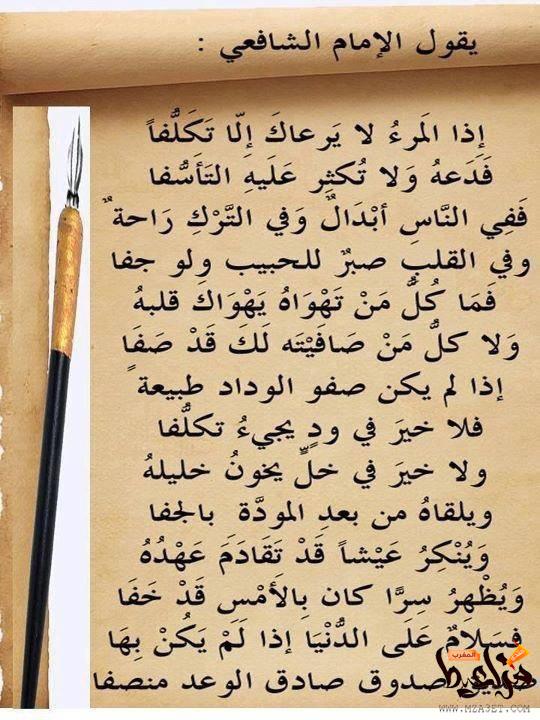 يقول الإمام الشافعي :
إذا المَرءُ لا يَرعاكَ إلّا تَكَلُّفاً
فَدَعهُ وَلا تُكثِر عَلَيهِ التَأَسُّفا
فَفِي النَّاسِ أبْدَالٌ وَفي التَّرْكِ رَاحةٌ
وفي القلبِ صبرٌ للحبيب ولو جفا
فَمَا كُلُّ مَنْ تَهْوَاهُ يَهْوَاكَ قلبهُ
وَلا كلُّ مَنْ صَافَيْتَه لَكَ قَدْ صَفَا
إذا لم يكن صفو الوداد طبيعةً
فلا خيرَ في ودٍ يجيءُ تكلُّفا
ولا خيرَ في خلٍّ يخونُ خليلهُ
ويلقاهُ من بعدِ المودَّةِ بالجفا
وَيُنْكِرُ عَيْشاً قَدْ تَقَادَمَ عَهْدُهُ
وَيُظْهِرُ سِرًّا كان بِالأمْسِ قَدْ خَفَا
فسَلامٌ عَلَى الدُّنْيَا إذا لَمْ يَكُنْ بِهَا
صدوق صادق الوعد منصفا
المغرب
WWW.MZA3ET.COM